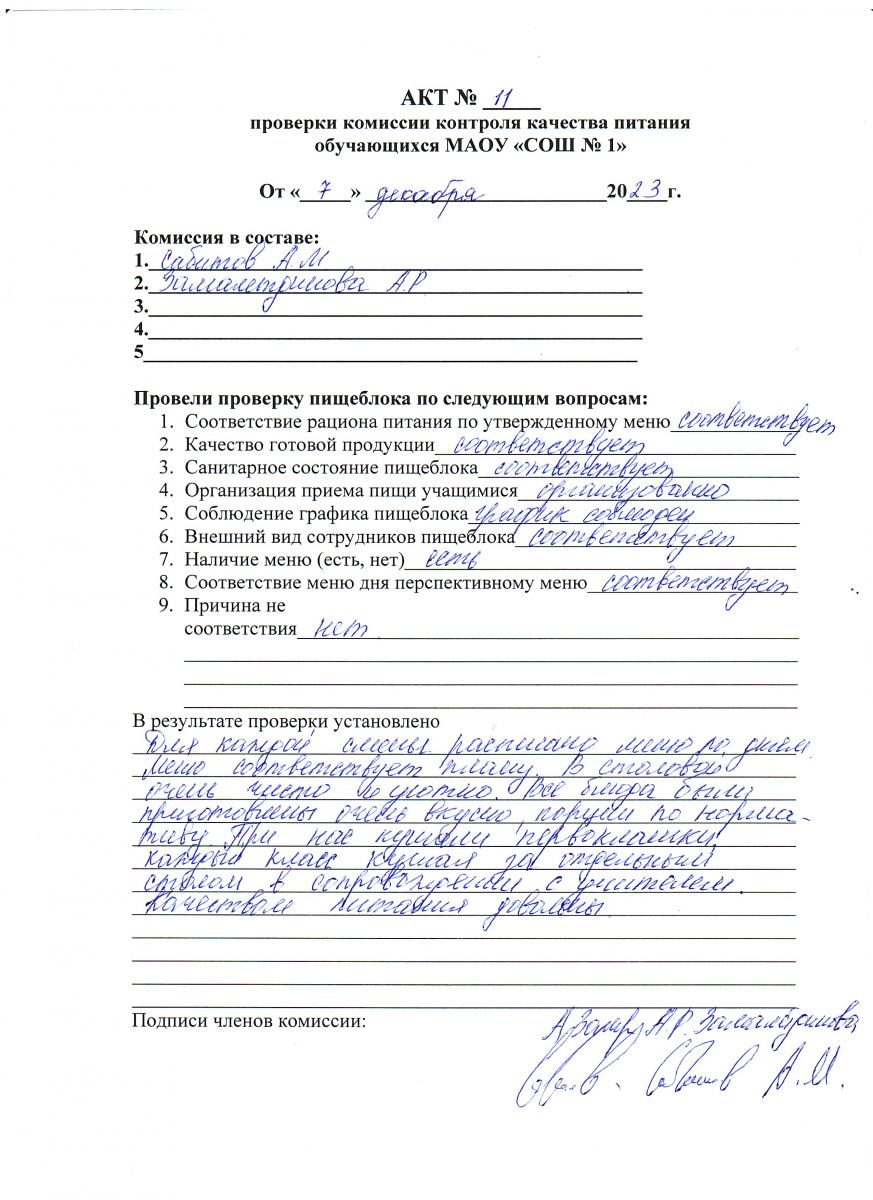 АКТ № 11
проверки комиссии контроля качества питания
обучающихся МАОУ «СОШ № 1»
От « 7 » декабря 2023 г.
Комиссия в составе:
1. Сабитов А.М
2. Замалетдинова А.Р
3.
4.
5
Провели проверку пищеблока по следующим вопросам:
1. Соответствие рациона питания по утвержденному меню соответствует
2. Качество готовой продукции соответствует
3. Санитарное состояние пищеблока соответствует
4. Организация приема пищи учащимися организованно
5. Соблюдение графика пищеблока график соблюден
6. Внешний вид сотрудников пищеблока соответствует
7. Наличие меню (есть, нет) есть
8. Соответствие меню дня перспективному меню соответствует
9. Причина не
соответствия нет
В результате проверки установлено
Для каждой смены расписано меню по дням.
Меню соответствует плану. В столовой
очень чисто и уютно. Все блюда были
приготовлены очень вкусно, порции по норма-
тиву. При нас кушали первоклашки,
каждый класс кушал за отдельным
столом в сопровождении с учителем.
Качеством питания довольны.
Подписи членов комиссии:
А.Р. Замалетдинова
Сабитов А.М.